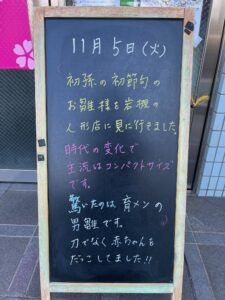 11月5日(火)
初孫の初節句の
お雛様を岩槻の
人形店に見に行きました。
時代の変化で
主流はコンパクトサイズ
です。
驚いたのは育メンの
男雛です。
刀でなく赤ちゃんを
だっこしてました!!